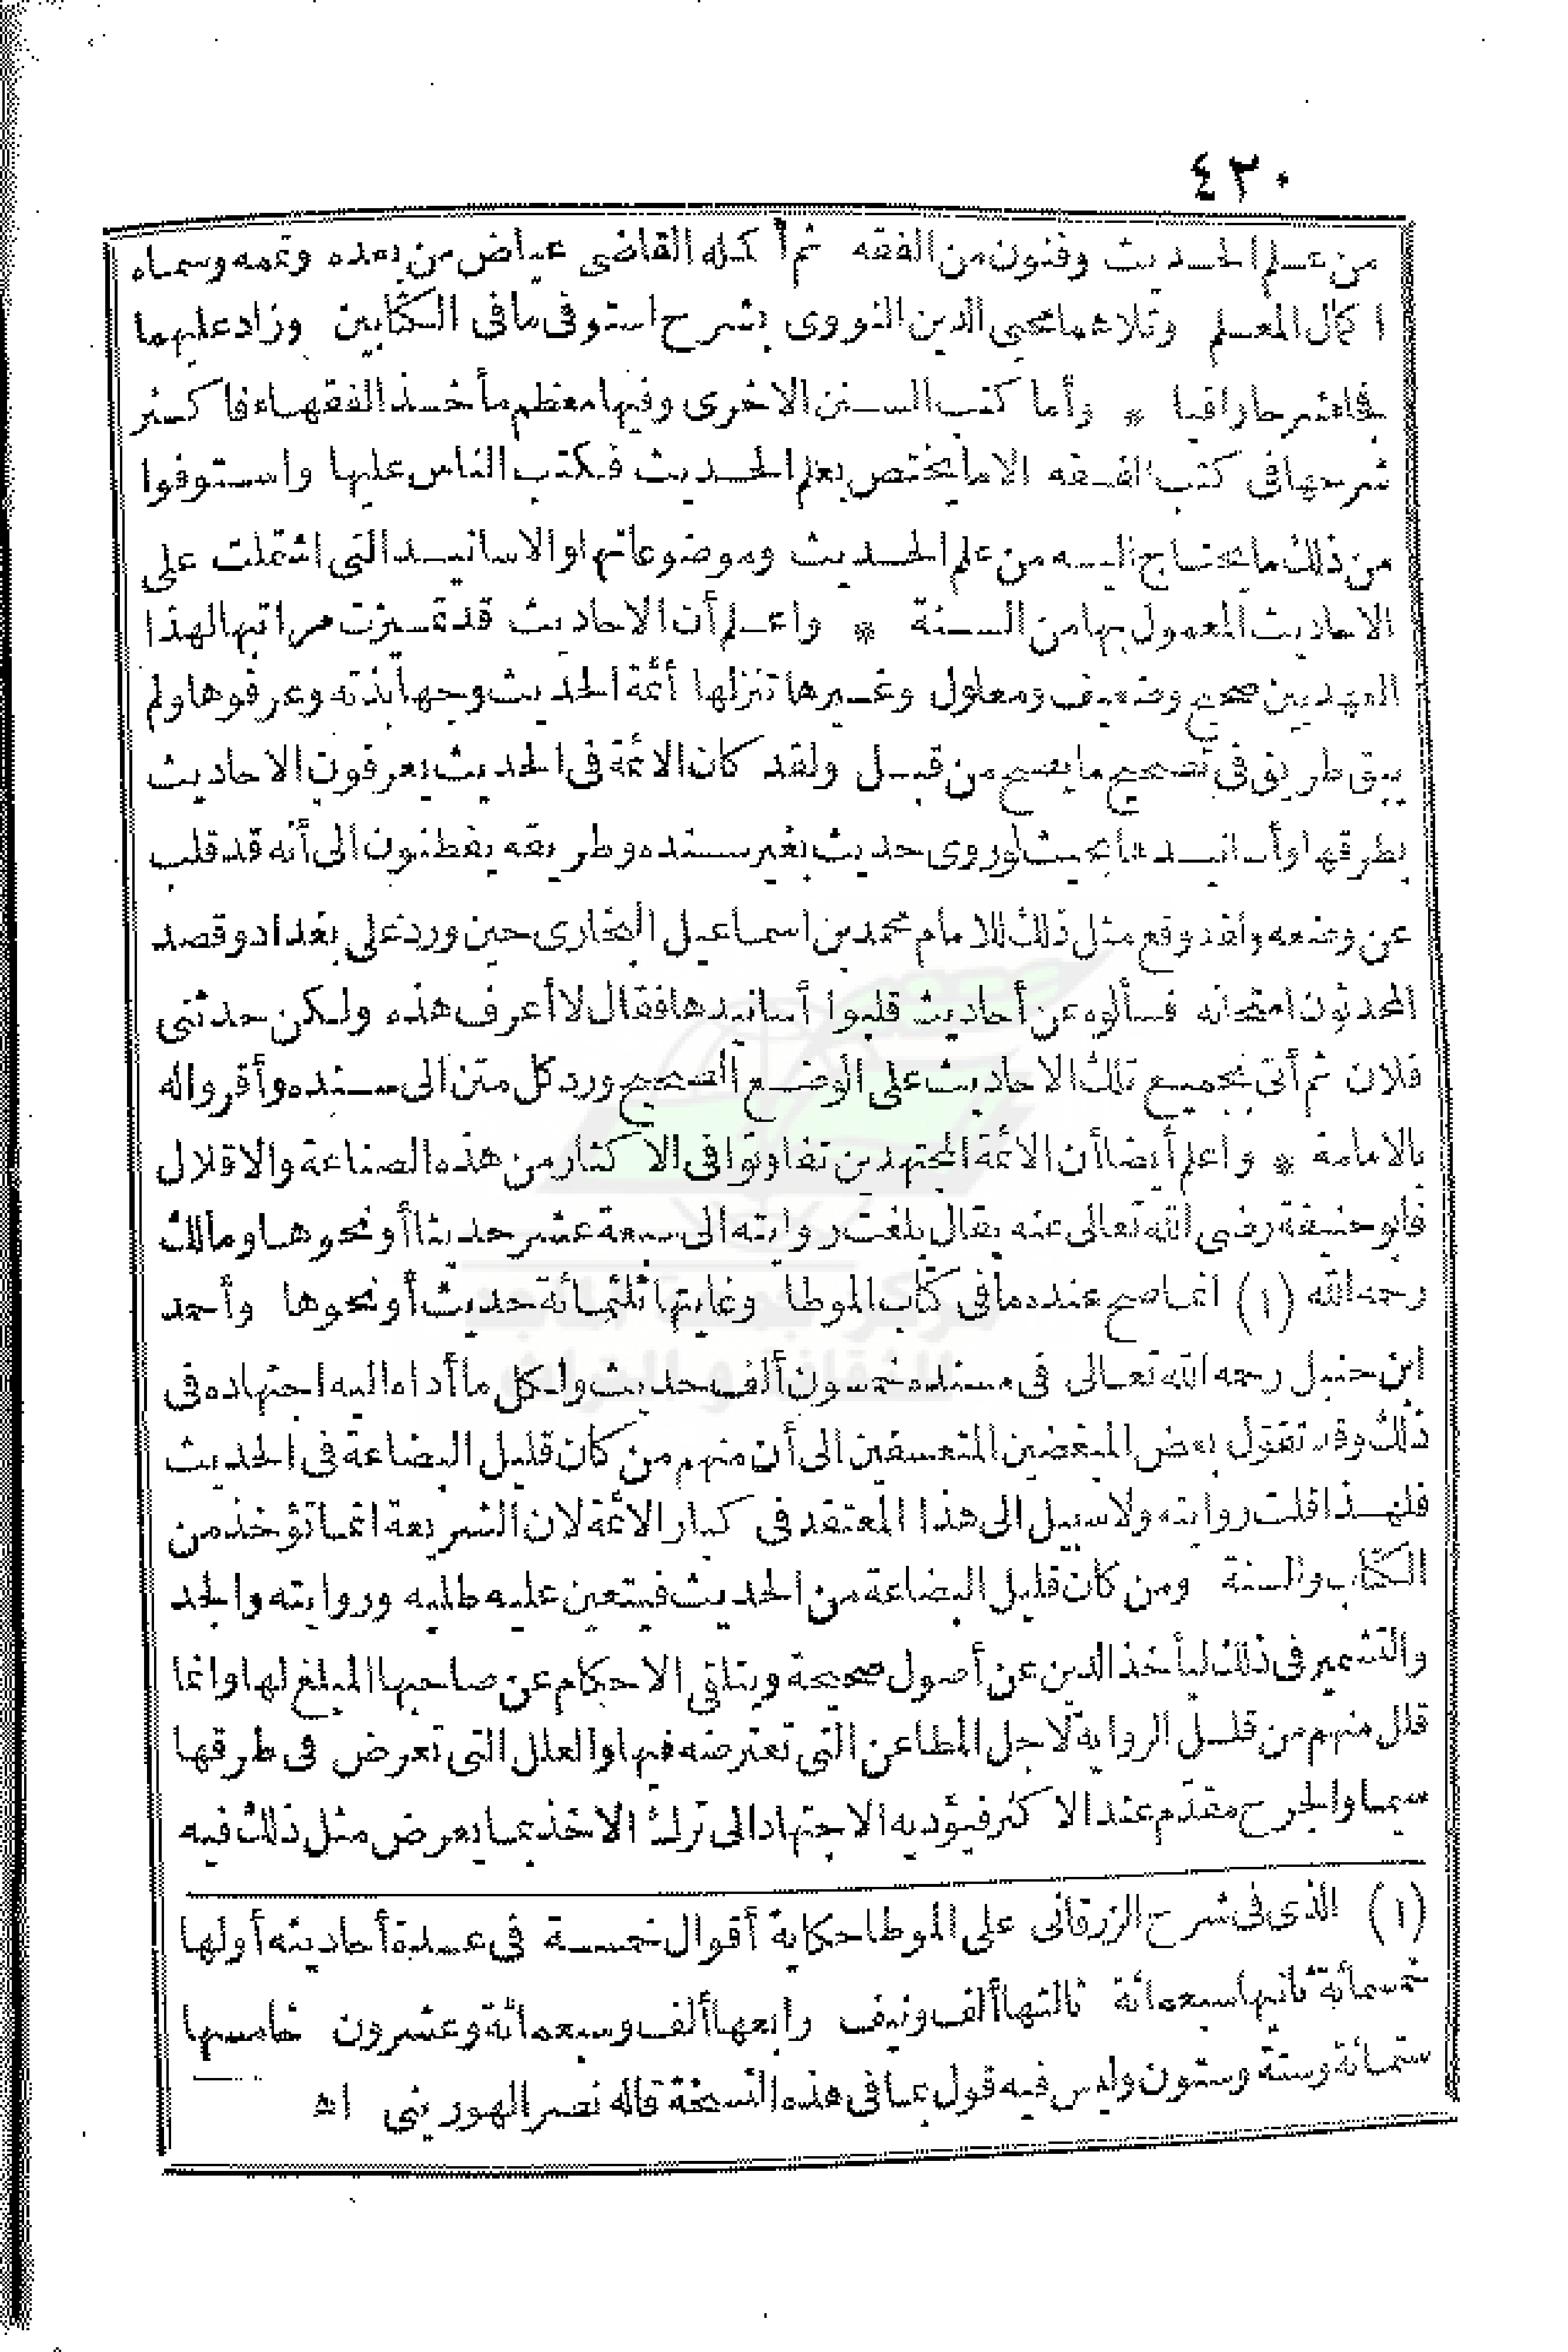 ٤٣٠
من علم الحديث وفنون من الفقه ثم أكمله القاضى عياض من بعده وتممه وسماه
اكمال المعلم وتلاهما محيى الدين النووى بشرح استوفى مافى الكتابين وزاد عليهما
فجاء شرحا وافيا * وأما كتب السنن الاخرى وفيها معظم مأخذ الفقهاء فاكثر
شرحها فى كتب الفقه الا ما يختص بعلم الحديث فكتب الناس عليها واستوفوا
من ذلك ما يحتاج اليه من علم الحديث وموضوعاتها والاسانيد التى اشتملت على
الاحاديث المعمول بها من السنة * واعلم أن الاحاديث قد تميزت مراتبها لهذا
العهد بين صحيح وضعيف ومعلول وغيرها تنزلها أئمة الحديث وجهابذته وعرفوها ولم
يبق طريق فى تصحيح ما يصح من قبل ولقد كان الائمة فى الحديث يعرفون الاحاديث
بطرقها وأسانيدها بحيث لوروى حديث بغير سنده وطريقه يفطنون الى أنه قد قلب
عن وضعه ولقد وقع مثل ذلك للامام محمد بن اسماعيل البخارى حين ورد على بغداد وقصد
المحدثون امتحانه فسألوه عن أحاديث قلبوا أسانيدها فقال لا أعرف هذه ولكن حدثنى
فلان ثم أتى بجميع تلك الاحاديث على الوضع الصحيح ورد كل متن الى سنده وأقروا له
بالامامة * واعلم أيضا أن الائمة المجتهدين تفاوتوا فى الاكثار من هذه الصناعة والاقلال
فأبو حنيفة رضى الله تعالى عنه يقال بلغت روايته الى سبعة عشر حديثا أو نحوها ومالك
رحمه الله (١) انما صح عنده ما فى كتاب الموطا وغايتها ثلثمائة حديث أو نحوها وأحمد
ابن حنبل رحمه الله تعالى فى مسنده خمسون ألف حديث ولكل ما أداه اليه اجتهاده فى
ذلك وقد تقول بعض المبغضين المتعسفين الى أن منهم من كان قليل البضاعة فى الحديث
فلهذا قلت روايته ولا سبيل الى هذا المعتقد فى كبار الائمة لان الشريعة انما تؤخذ من
الكتاب والسنة ومن كان قليل البضاعة من الحديث فيتعين عليه طلبه وروايته والجد
والتشمير فى ذلك ليأخذ الدين عن أصول صحيحة ويتلقى الاحكام عن صاحبها المبلغ لها وانما
قلل منهم من قلل الرواية لاجل المطاعن التى تعترضه فيها والعلل التى تعرض فى طرقها
سيما والجرح مقدم عند الاكثر فيؤديه الاجتهاد الى ترك الاخذ بما يعرض مثل ذلك فيه
(١) الذى فى شرح الزرقانى على الموطا حكاية أقوال خمسة فى عدة أحاديثه أولها
خمسمائة ثانيها سبعمائة ثالثها ألف ونيف رابعها ألف وسبعمائة وعشرون خامسها
ستمائة وستة وستون وليس فيه قول بما فى هذه النسخة قاله نصر الهورينى اه